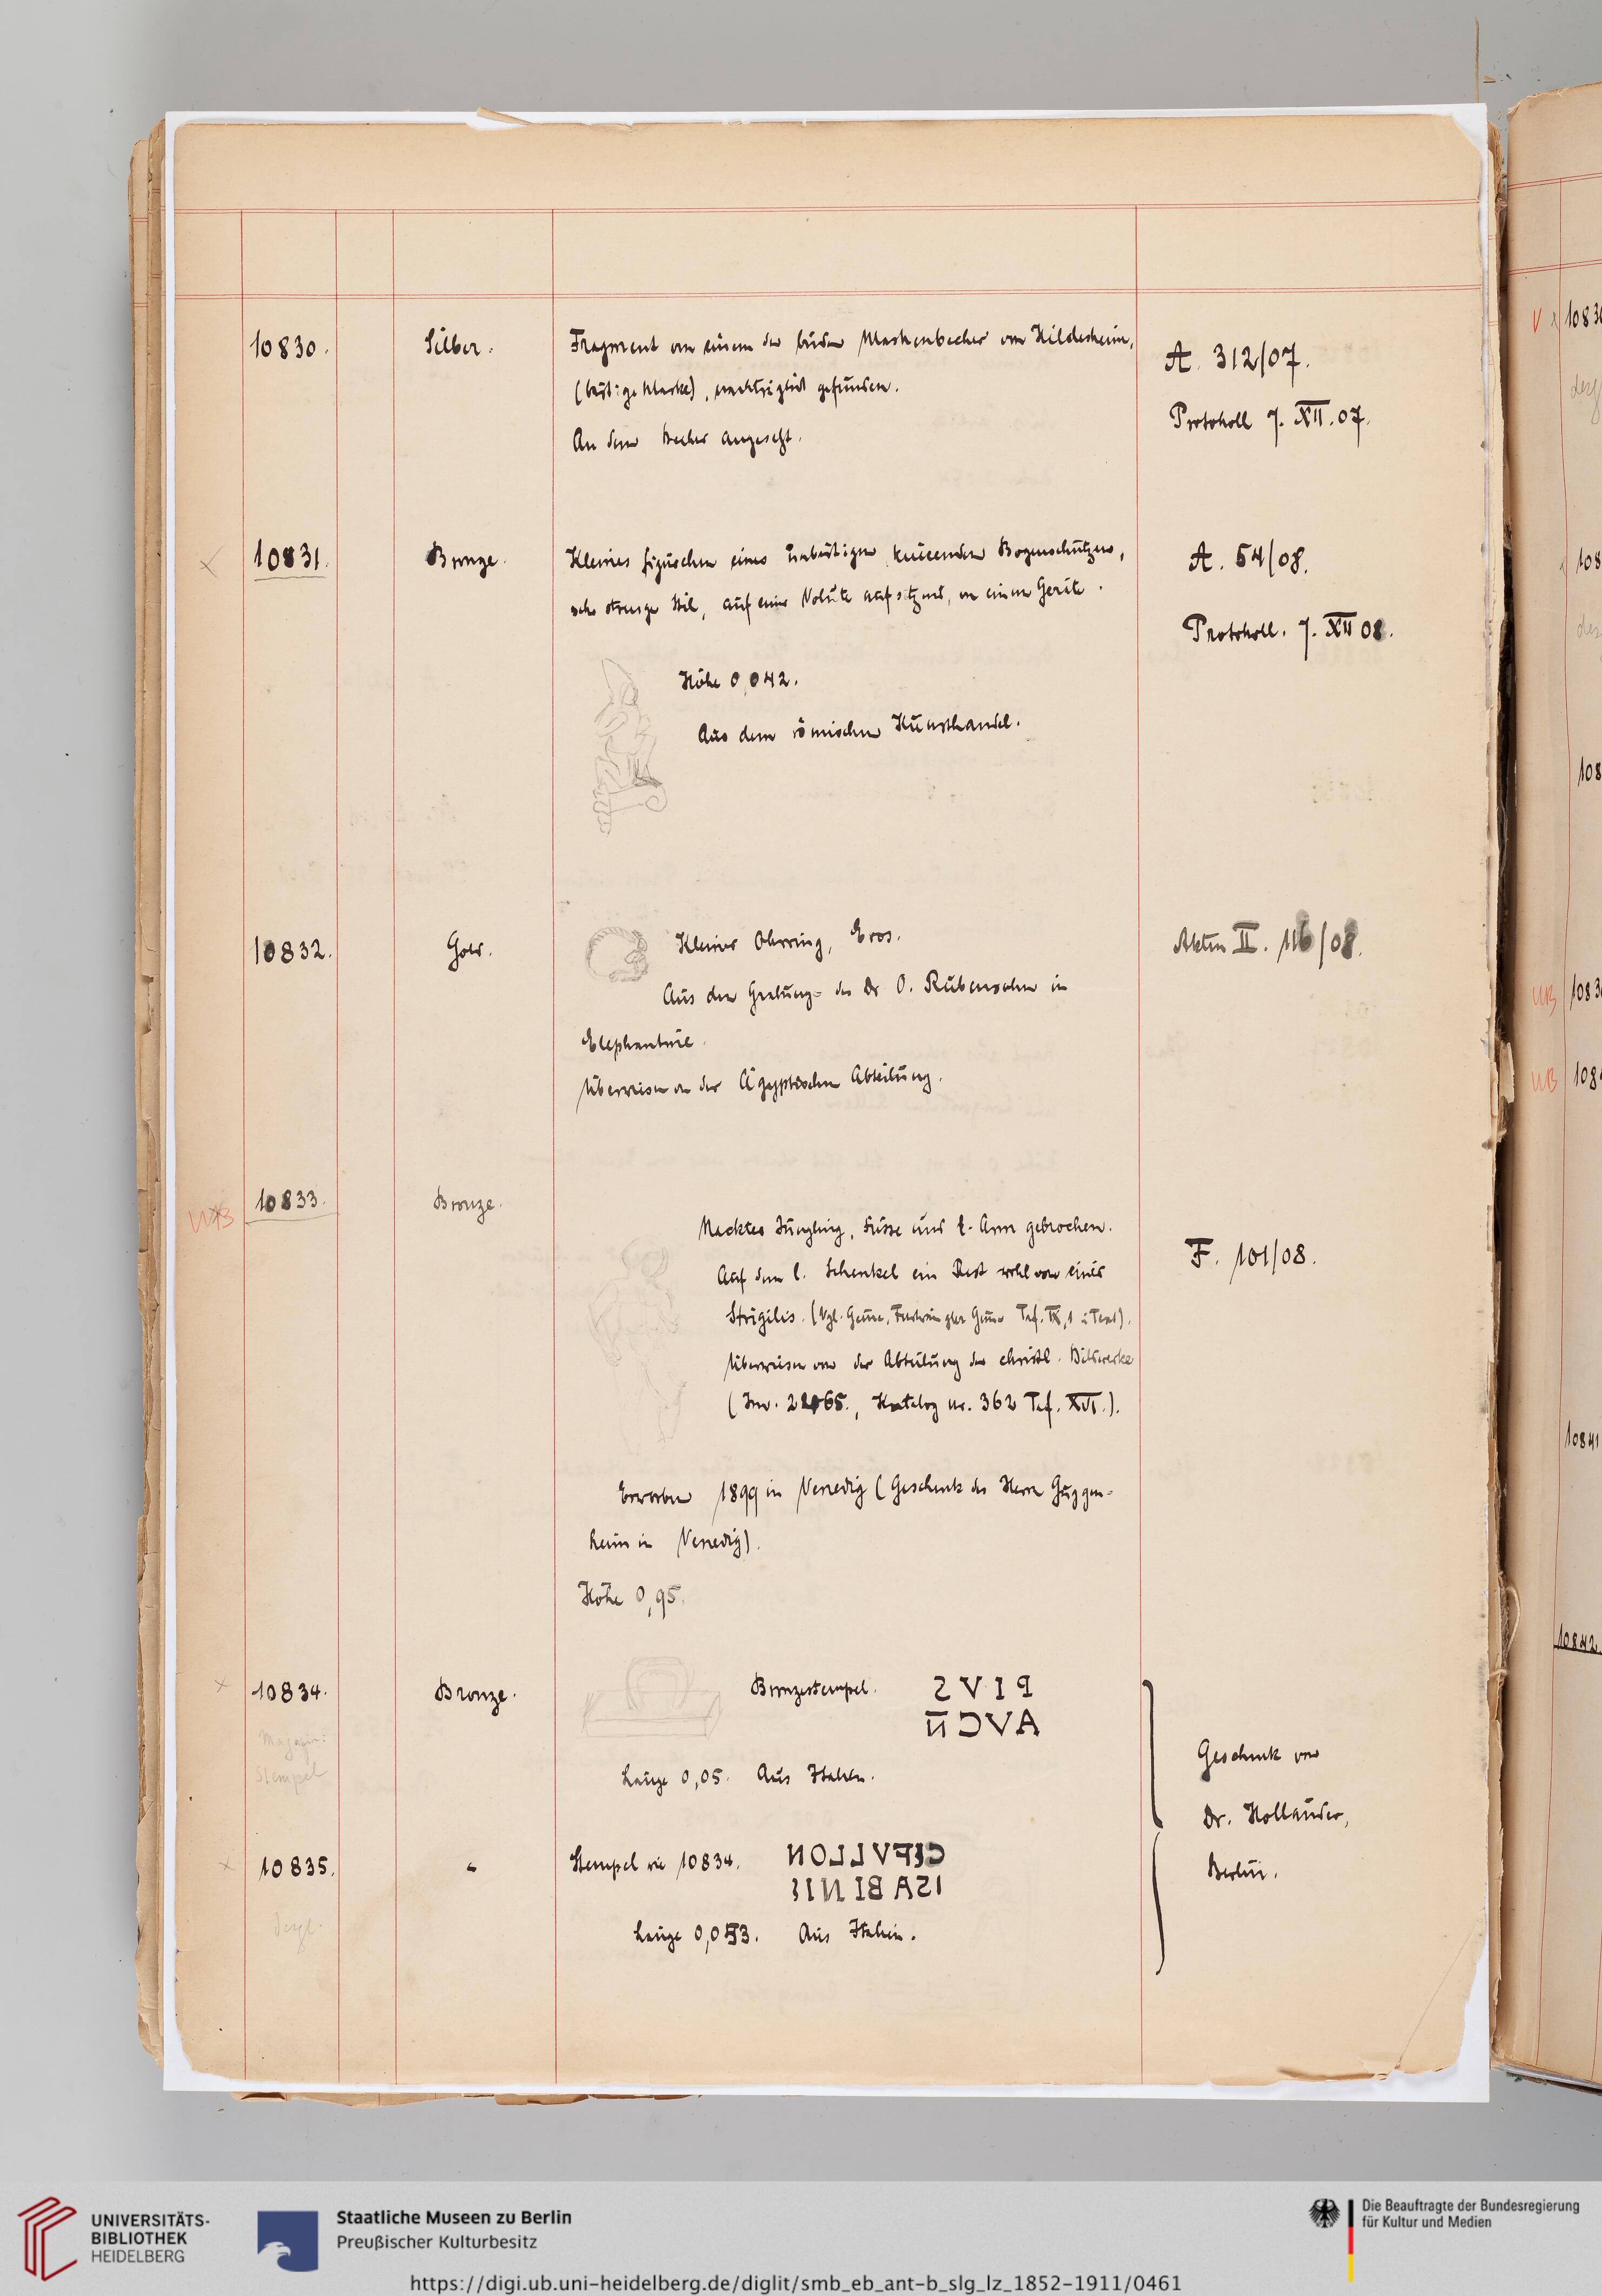 10830. Silber. Fragment von einem der beiden Maskenbecher von Hildesheim, A. 312/07.
(bärtige Maske), nachträglich gefunden. Protokoll 7. XII. 07.
An dem Becher angesetzt.
10831. Bronze. Kleines Figürchen eines unbärtigen knieenden Bogenschützen, A. 54/08.
sehr strenger Stil, auf einer Volute aufsitzend, von einem Geräte. Protokoll. 7. XII 08.
Höhe 0,042.
Aus dem römischen Kunsthandel.
10832. Gold. Kleiner Ohrring, Eros. Akten II. 116/08.
Aus den Grabung= des Dr O. Rubensohn in
Elephantine.
Überwiesen von der Ägyptischen Abteilung.
10833. Bronze.
Nackter Jüngling, Füsse und l. Arm gebrochen.
Auf dem l. Schenkel ein Rest wohl von einer F. 101/08.
Strigilis. (Vgl. Gemme, Furtwängler Taf. IX,1
Überwiesen von der Abteilung der christl. Bildwerke
(Inv. Katalog nr. 362 Taf. XVI.).
Erworben 1899 in Venedig (Geschenk des Herrn Guggen-
heim in Venedig).
Höhe 0,95.
10834. Bronze. Bronzestempel. PIVS
AVCN
Magazin:
Stempel
Länge 0,05. Aus Italien.
Geschenk von
Dr. Holländer,
Berlin.
10835. " Stempel wie 10834.
Länge 0,053. Aus Italien.
dergl.
V 1083
108
108
UB 1083
UB 108
1084
10842.
UNIVERSITÄTS-
BIBLIOTHEK
HEIDELBERG
Staatliche Museen zu Berlin
Preußischer Kulturbesitz
Die Beauftragte der Bundesregierung
für Kultur und Medien
https://digi.ub.uni-heidelberg.de/diglit/smb_eb_ant-b_slg_lz_1852-1911/0461